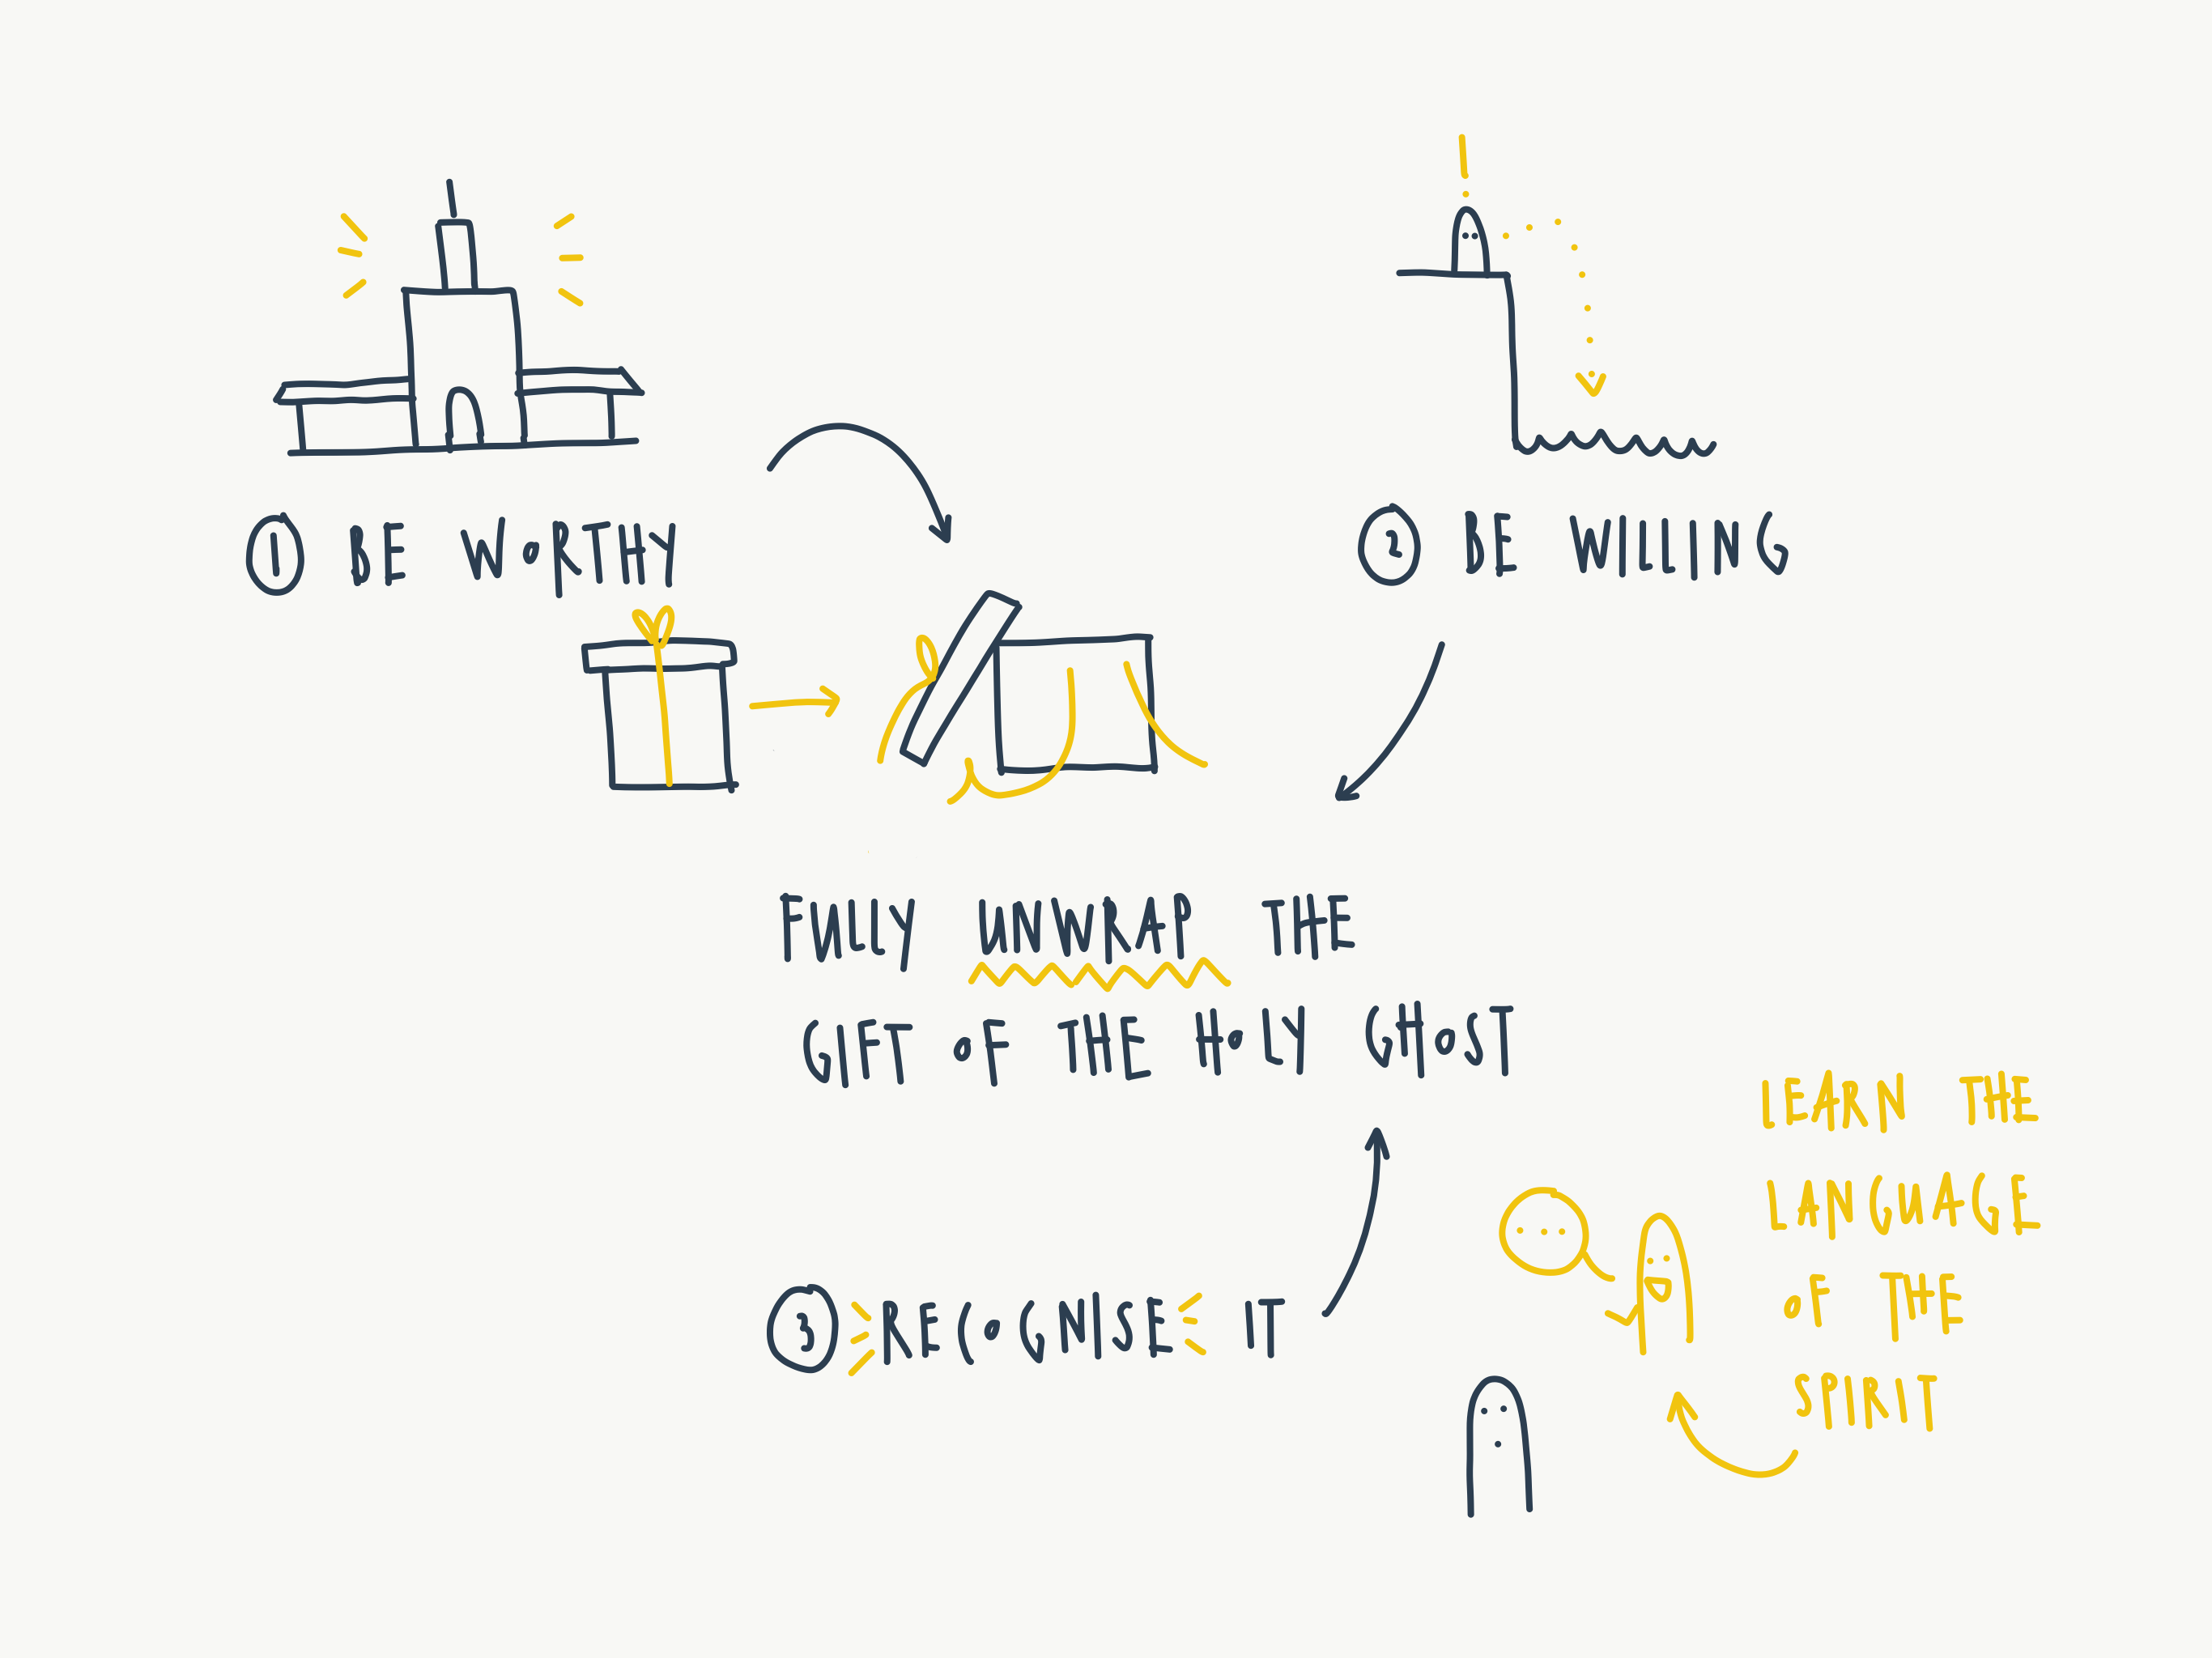 1 BE WORTHY
2 BE WILLING
FULLY UNWRAP THE
GIFT OF THE HOLY GHOST
3 RECOGNISE IT
LEARN THE
LANGUAGE
OF THE
SPIRIT